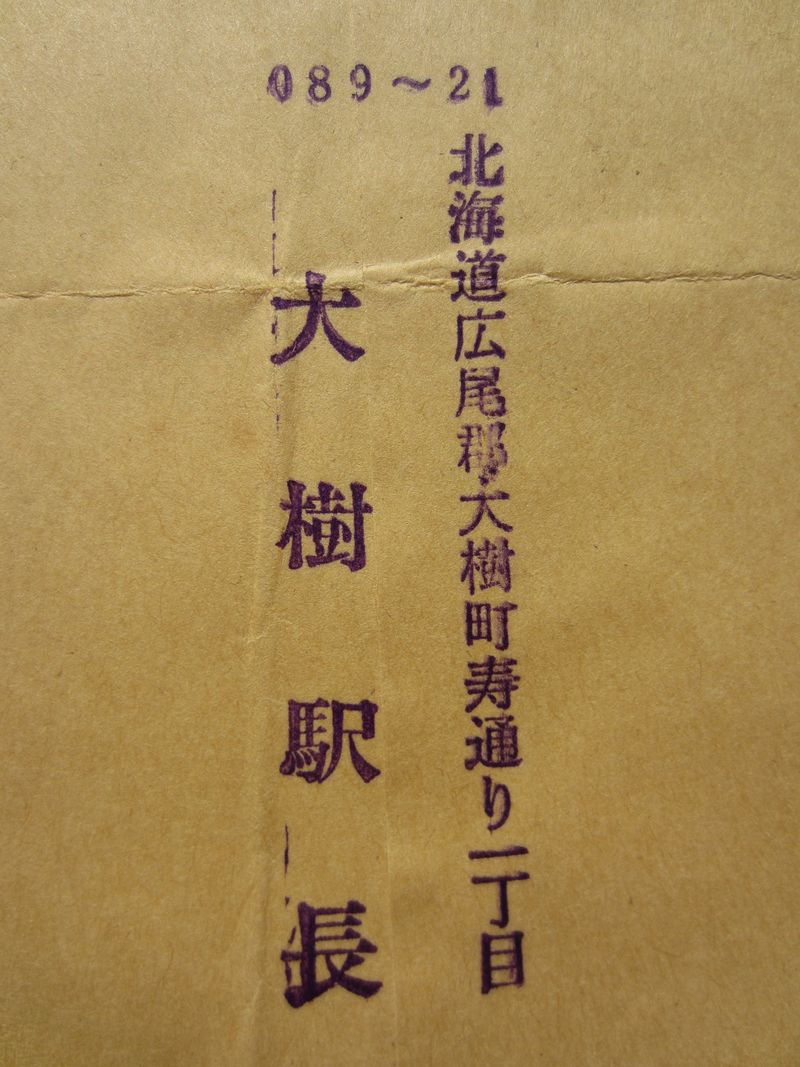 089〜21
北海道広尾郡大樹町寿通り一丁目
大樹駅長